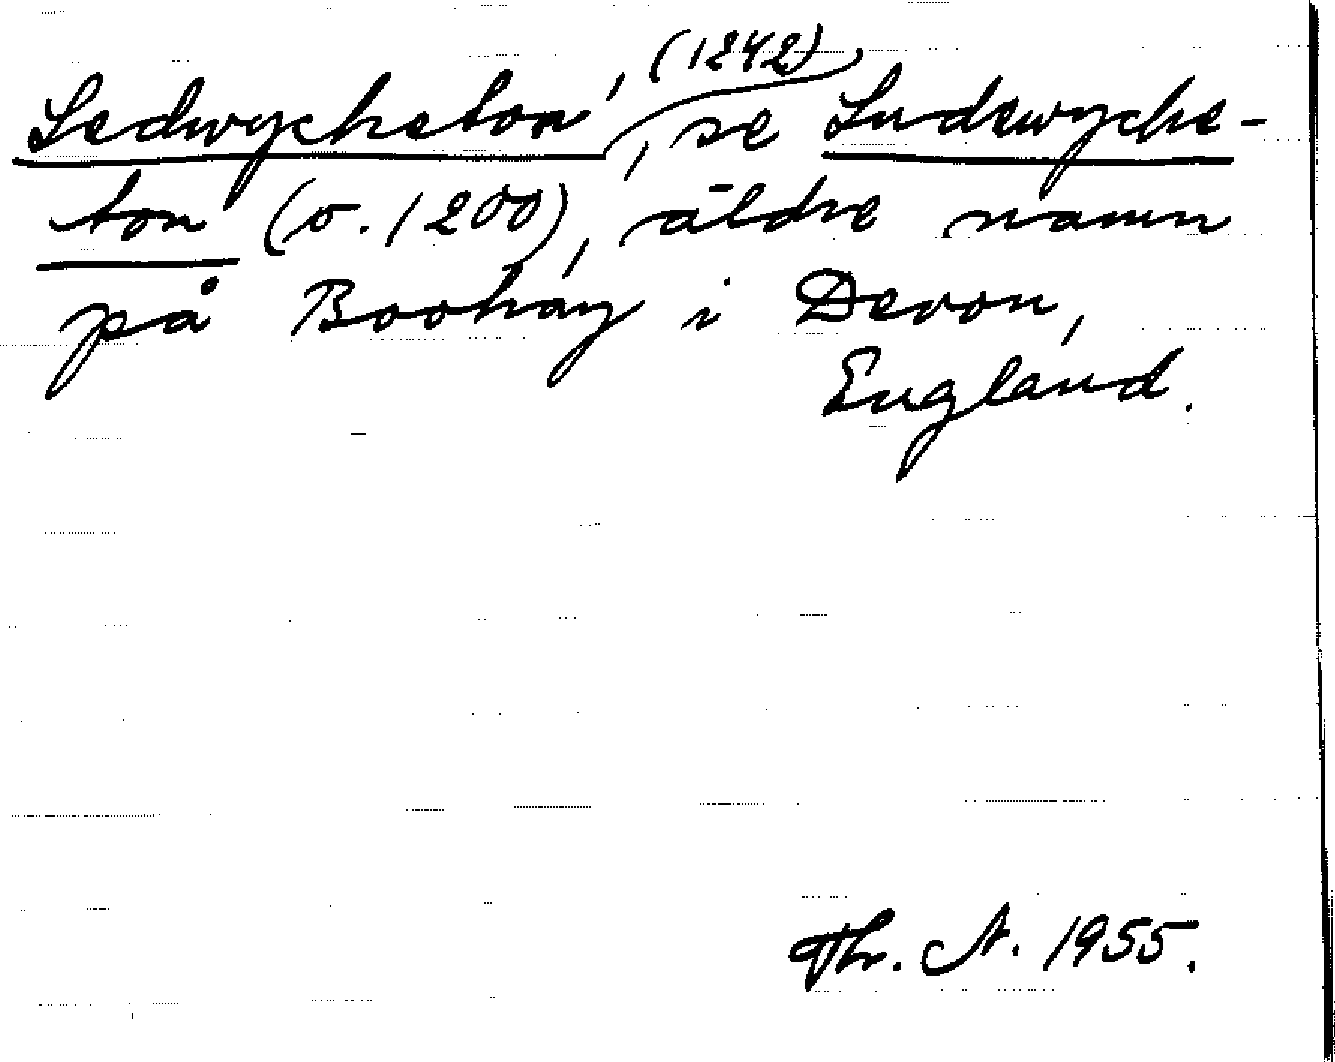 Ledwycheton' (1242), se Ludewyche-
ton (o. 1200), äldre namn
på Boohay i Devon,
England.
Th. A. 1955.